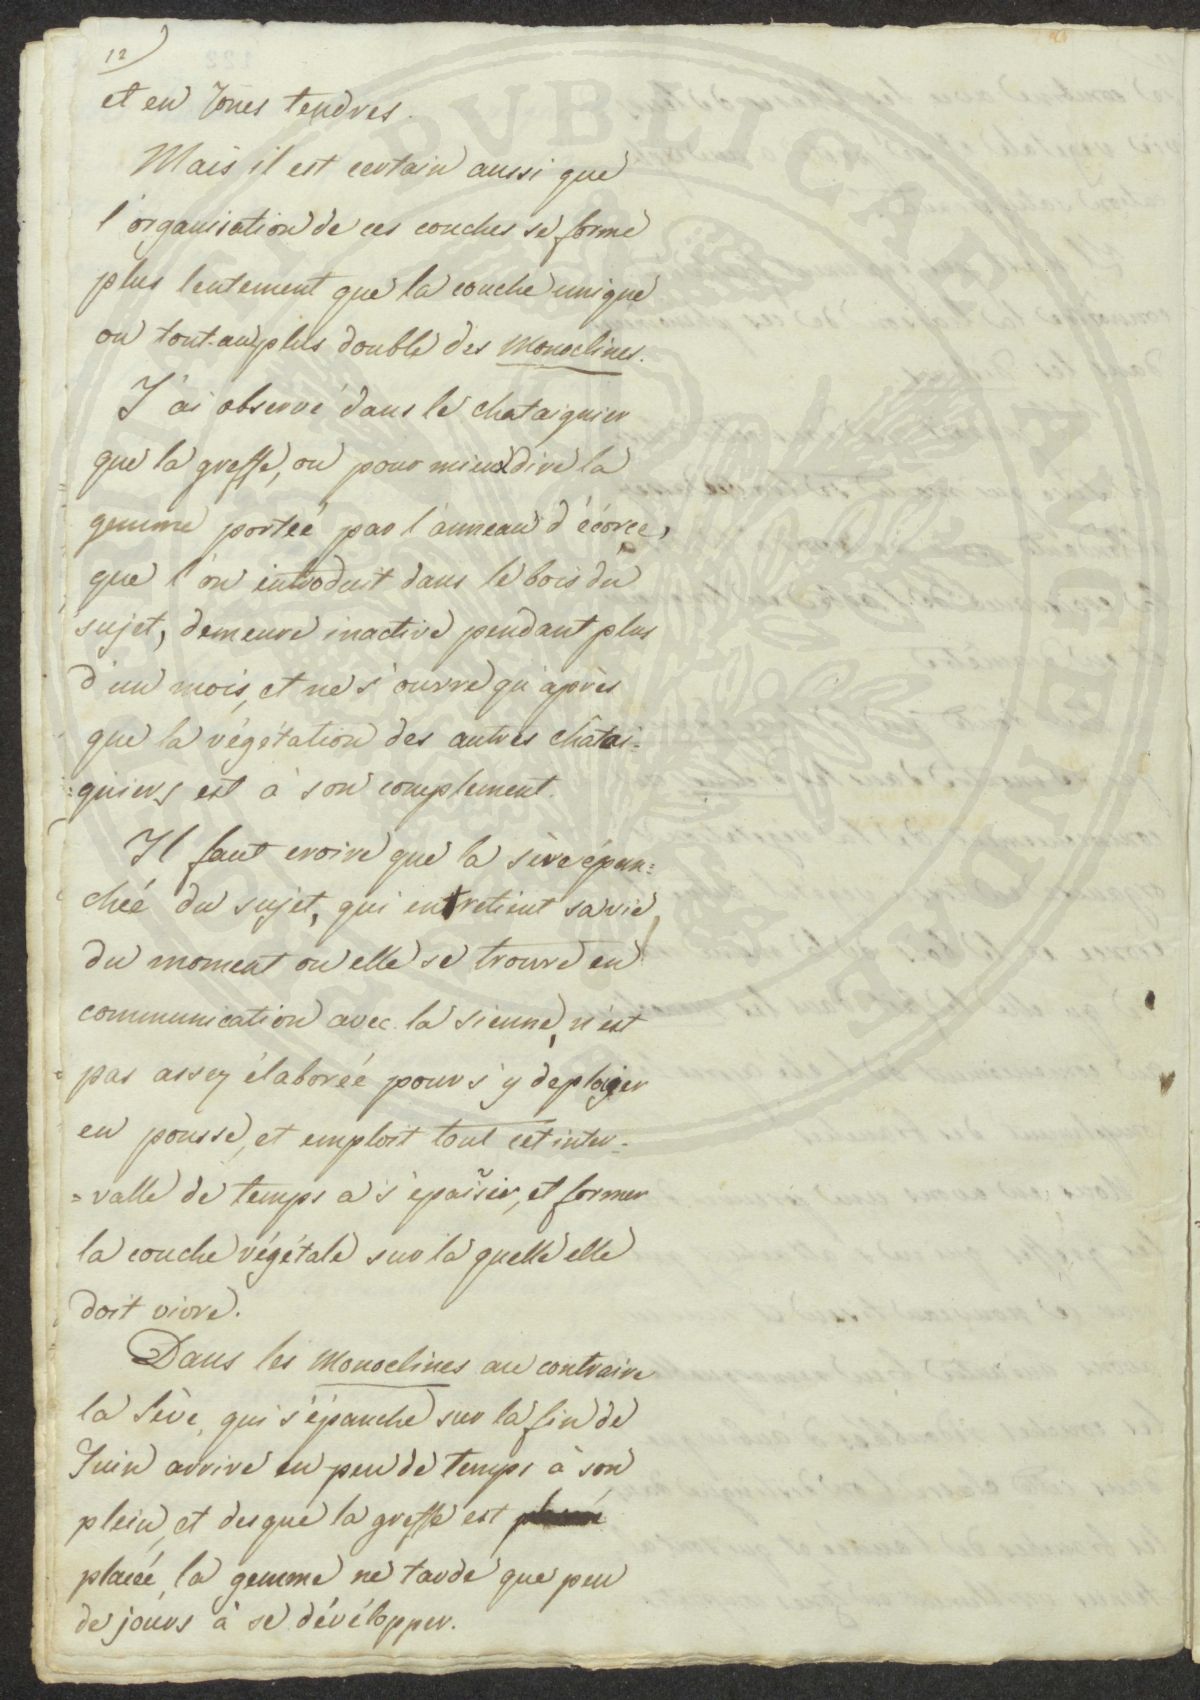 12)
et en zones tendres.
Mais il est certain aussi que
l'organisation de ces couches se forme
plus lentement que la couche unique
ou tout-au plus double des monoclines.
J'ai observé dans le chataignier
que la greffe, ou pour mieux dire la
gemme portée par l'anneau d'écorce,
que l'on introduit dans le bois du
sujet, demeure inactive pendant plus
d'un mois, et ne s'ouvre qu'après
que la végétation des autres châtai=
=gniers est à son complement.
Il faut croire que la sève épan=
chée du sujet, qui entretient sa vie
du moment ou elle se trouve en
communication avec la sienne, n'est
pas assez élaborée pour s'y deploier
en pousse, et emploit tout cet inter=
=valle de temps a s'epaissir, et former
la couche végétale sur la quelle elle
doit vivre.
Dans les Monoclines au contraire
la sève, qui s'épanche sur la fin de
Juin arrive en peu de temps à son
plein, et des que la greffe est
placée, la gemme ne tarde que peu
de jours à se dévélopper.
PVBLICAE